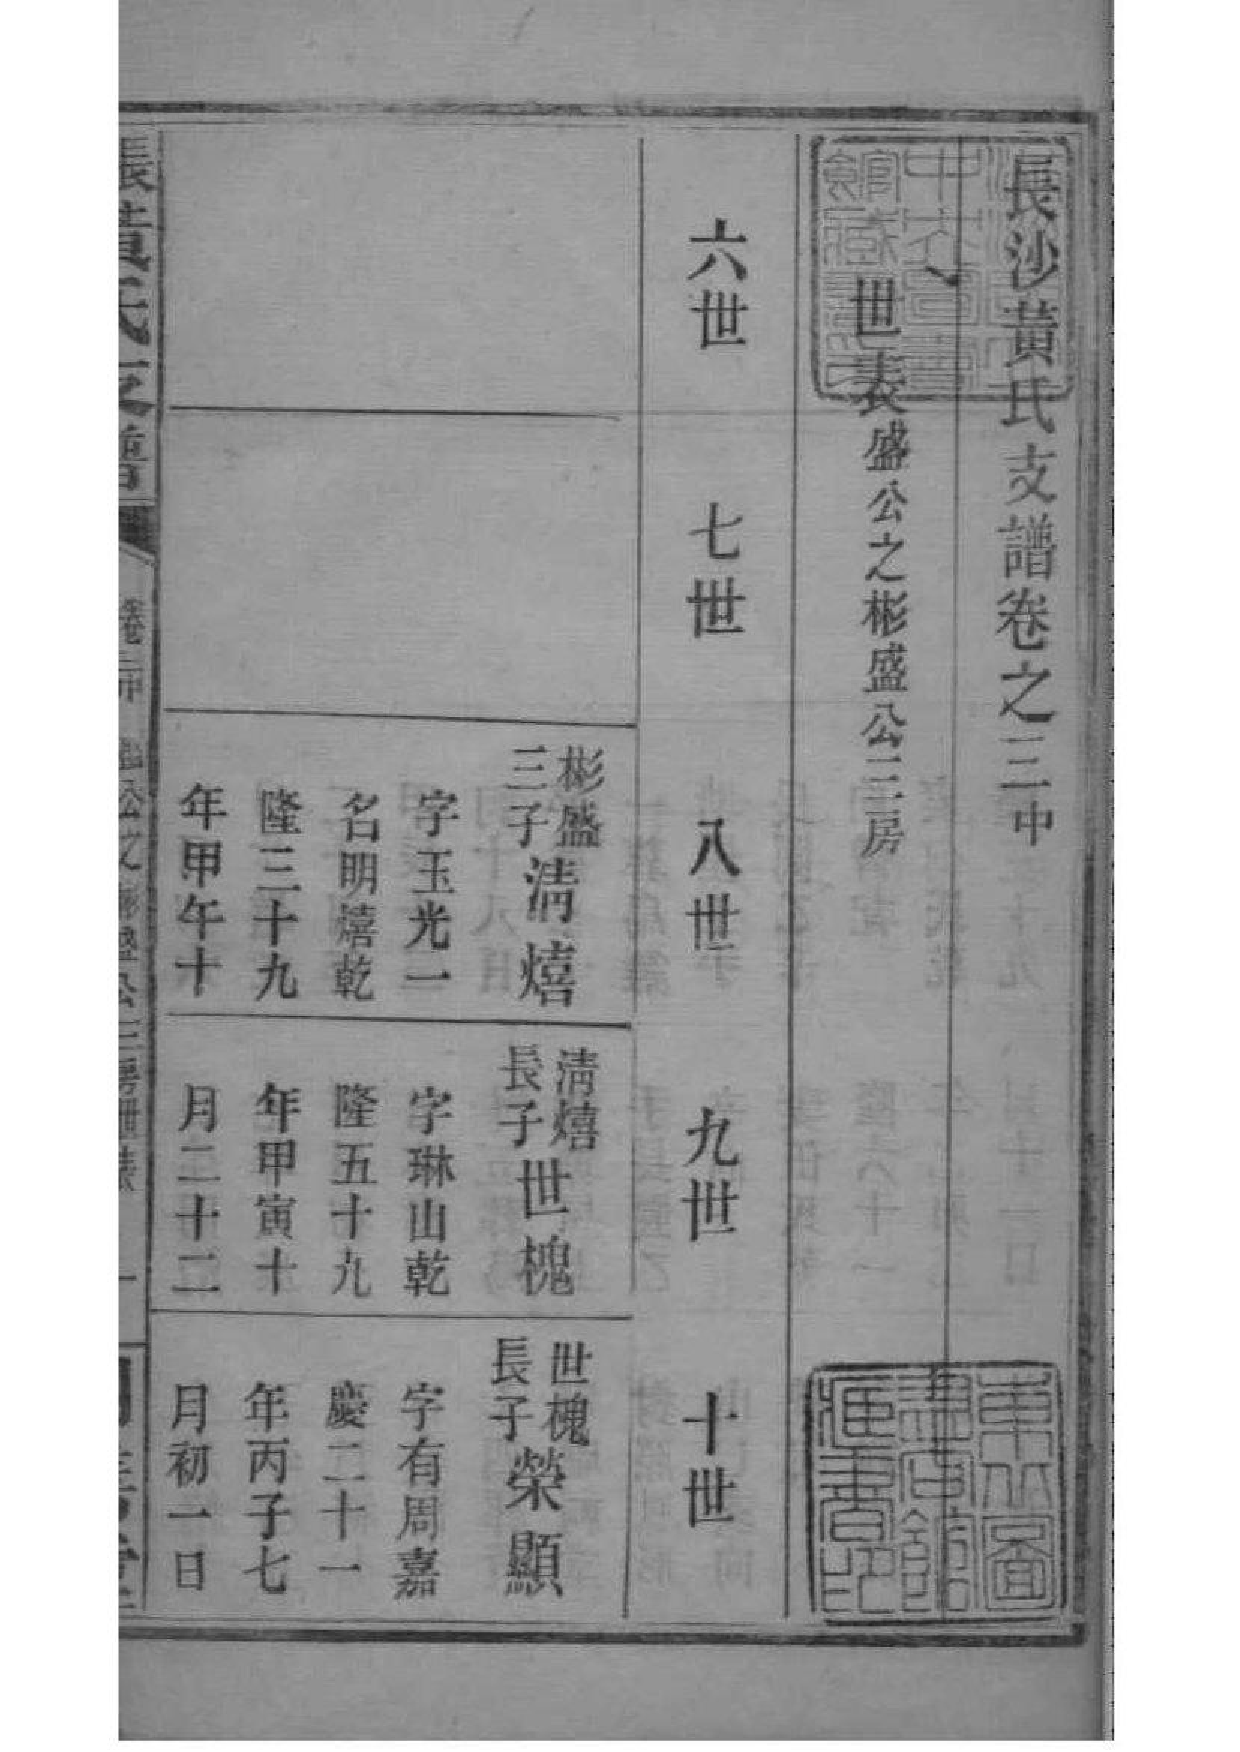 長沙黃氏支譜卷之三中
世表盛公之彬盛公三房
六世
七世
八世
九世
十世
彬盛
三子
淸熺
字玉光一
名明熺乾
隆三十九
年甲午十
淸熺
長子
世槐
字琳山乾
隆五十九
年甲寅十
月二十二
世槐
長子
榮顯
字有周嘉
慶二十一
年丙子七
月初一日
黃氏支譜
卷三中
公之彬盛公三房
一